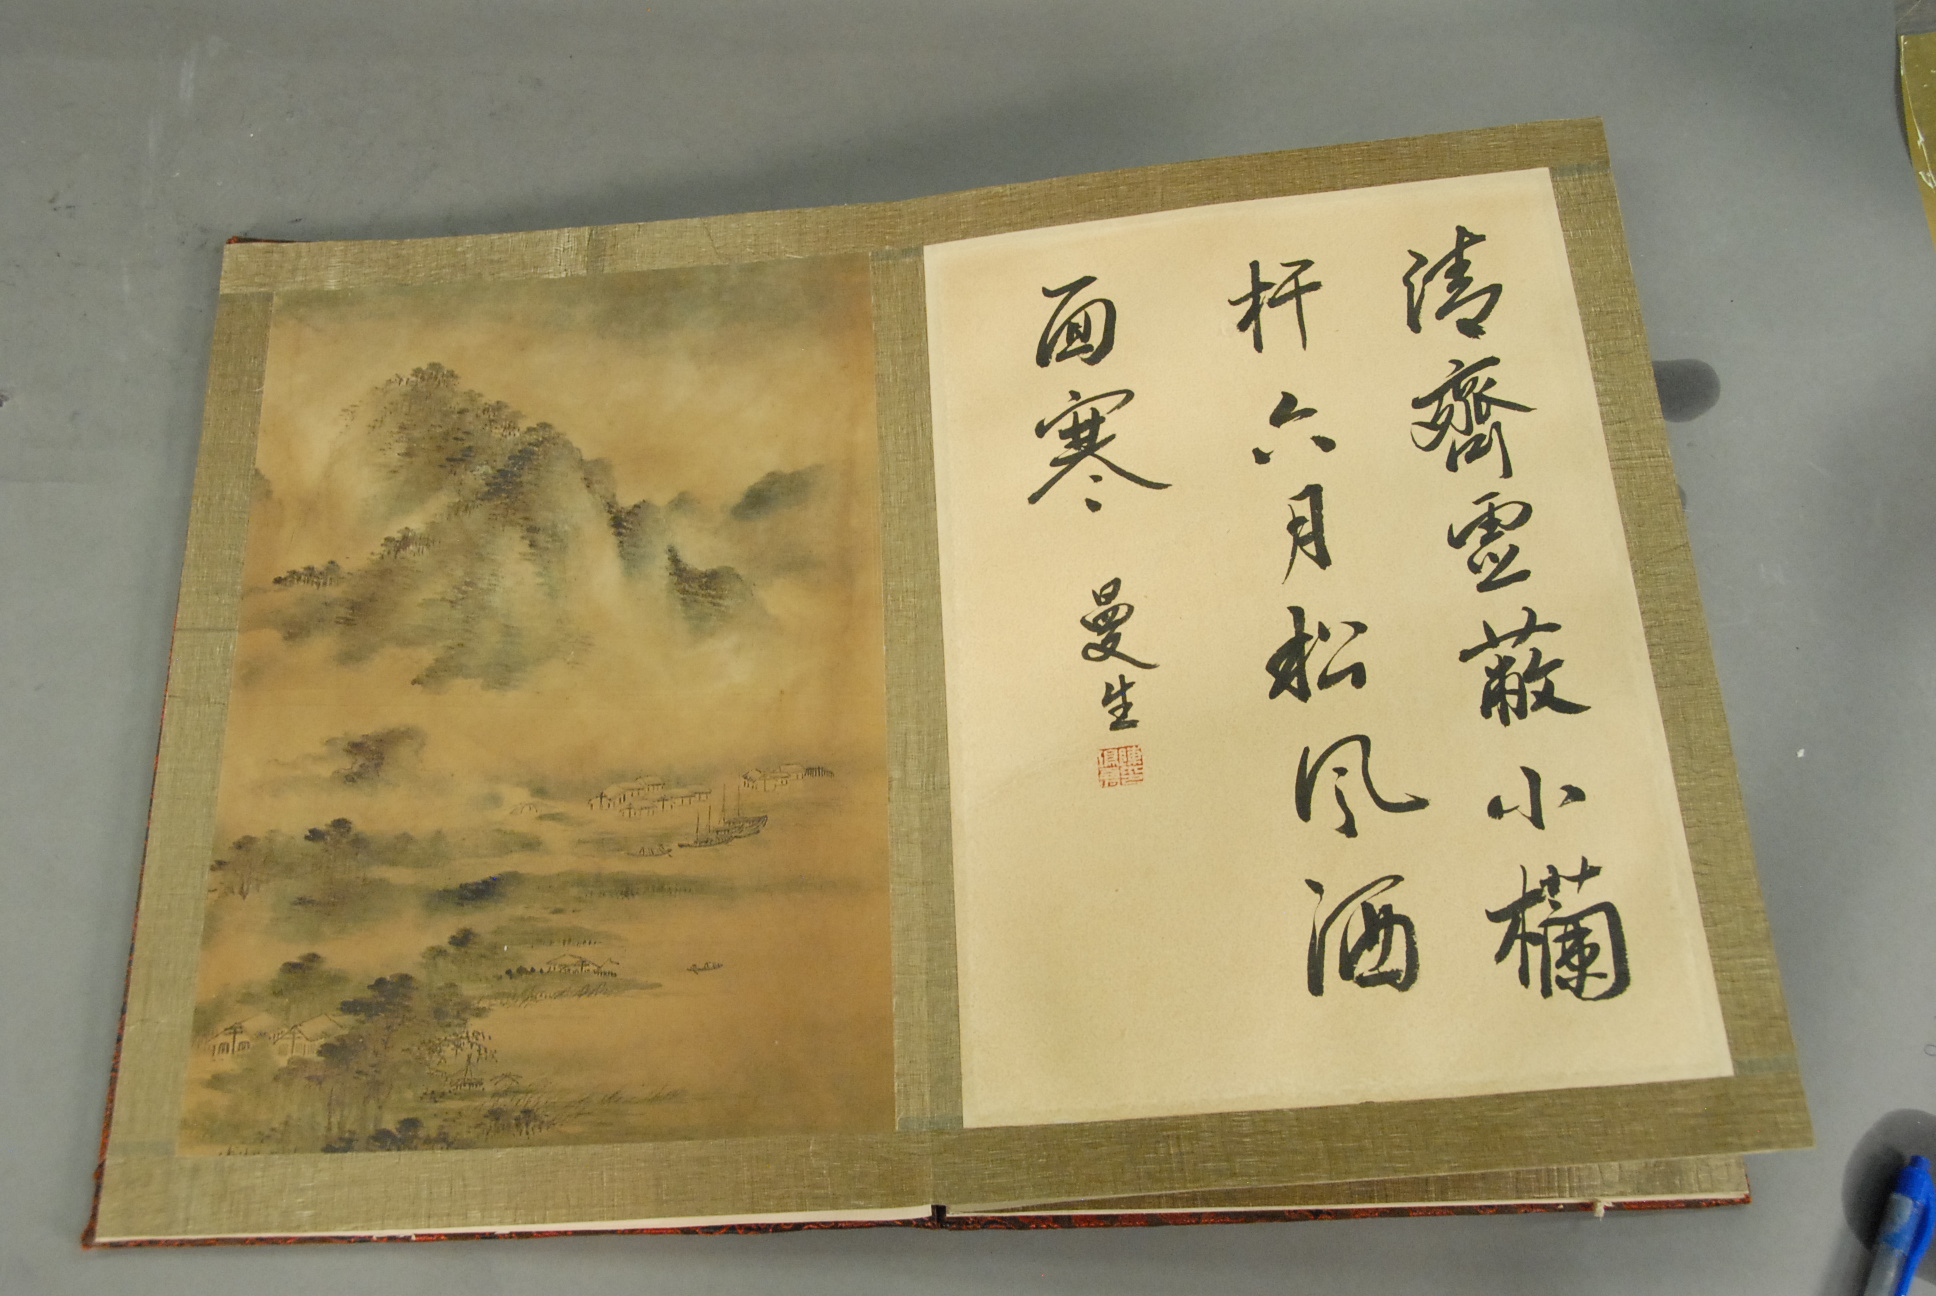 清齋靈蔽小欄
杆六月松風洒
面寒
曼生